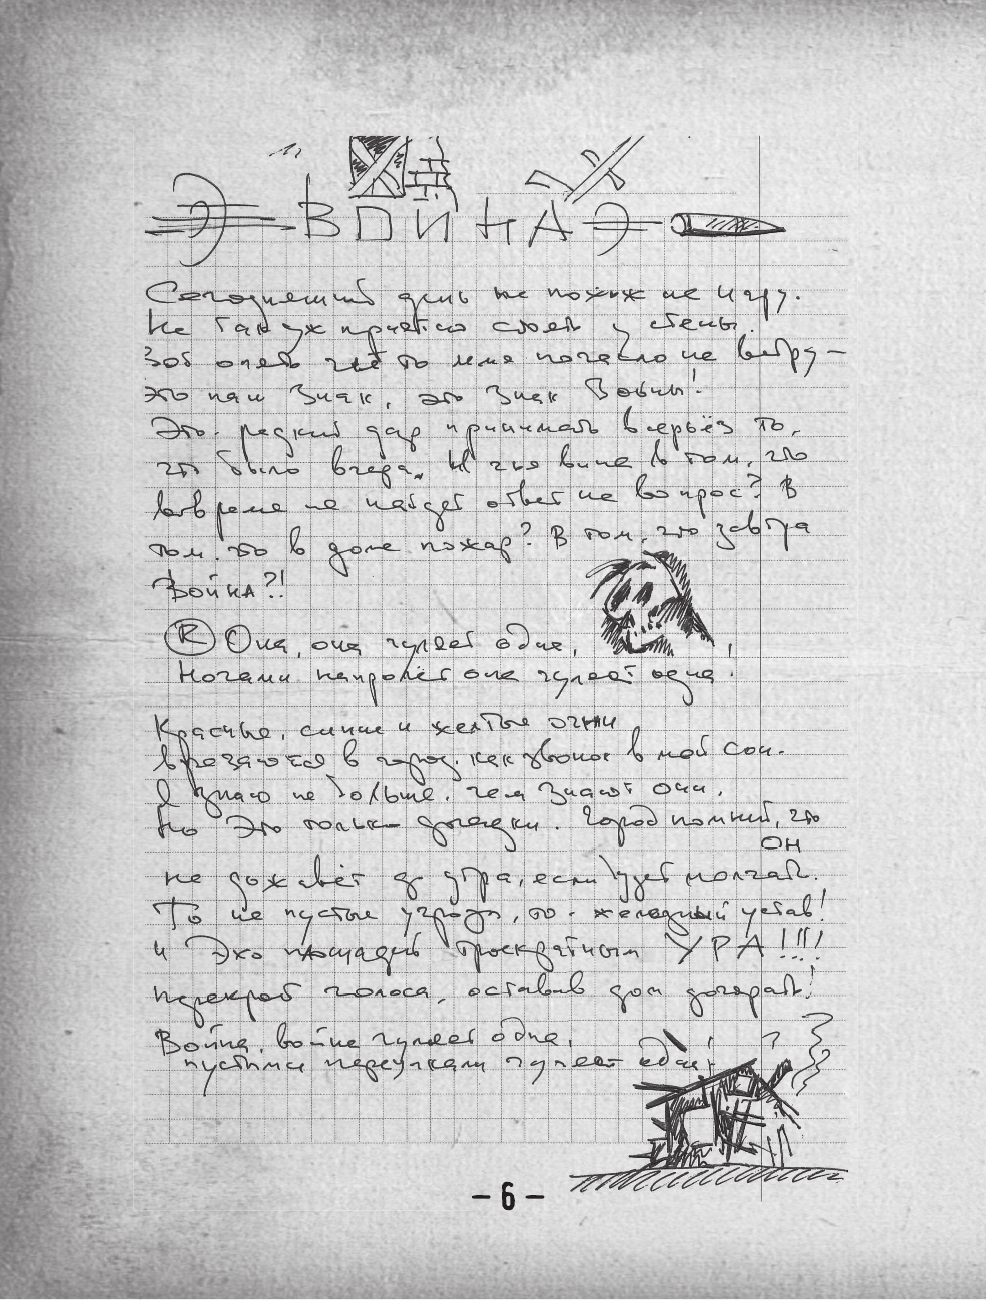 Э ВОЙНА Э
Сегодняшний день не похож на игру.
Не так уж приятно стоять у стены.
Вот опять чьё-то имя погасло на ветру —
это наш Знак, это Знак Войны!
Это - редкий дар принимать всерьёз то,
что было вчера. И чья вина в том, что
вовремя не найдет ответ на вопрос? В
том, что в доме пожар? В том, что завтра
Война?!
R Она, она гуляет одна,
Ночами напролёт она гуляет одна!
Красные, синие и желтые огни
врезаются в город, как звонок в мой сон.
Я знаю не больше, чем знают они,
Но это только догадки. Город помнит, что
он
не доживёт до утра, если будет молчать.
То не пустые угрозы, то - железный устав!
и Эхо площадей троекратным УРА!!!!
перекроет голоса, оставив дом догорать!
Война, война гуляет одна,
пустыми переулками гуляет одна!
- 6 -